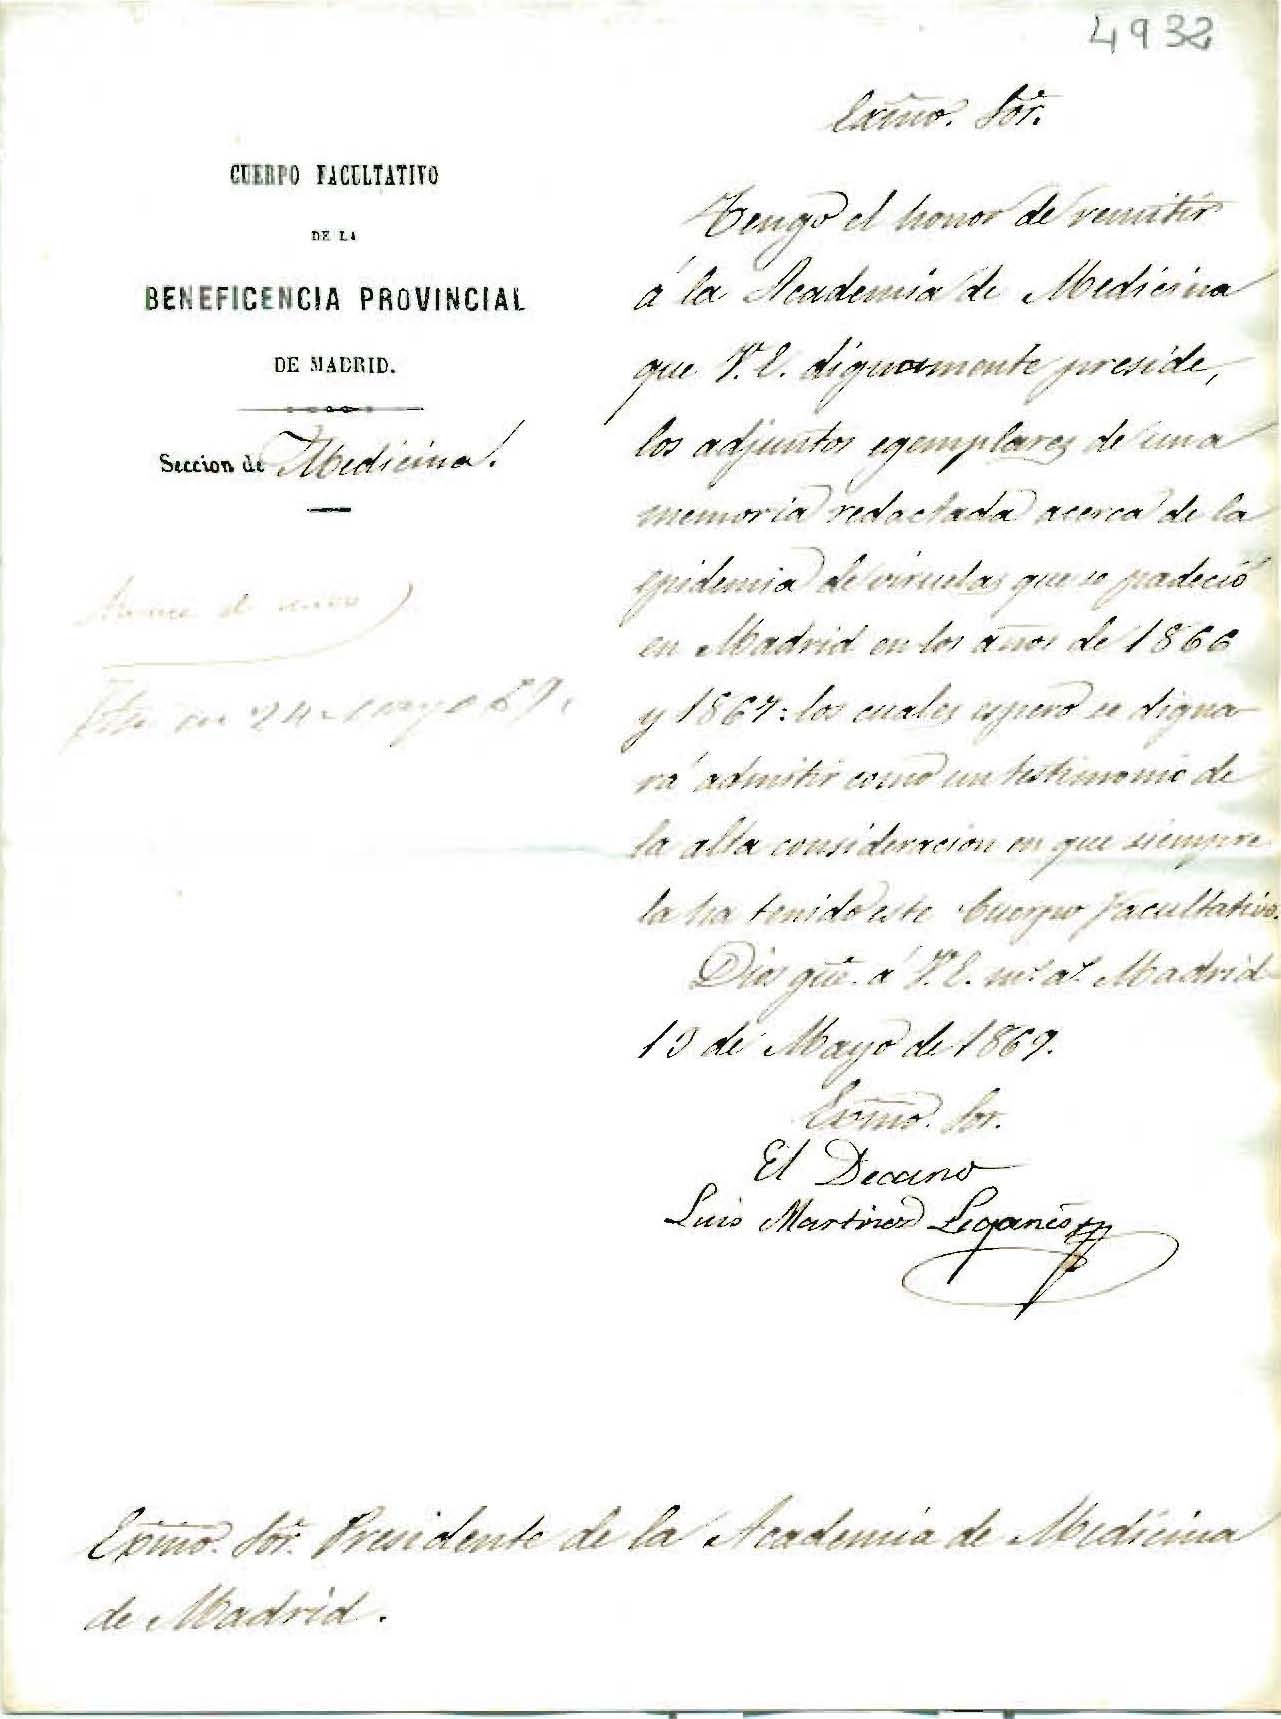 4932
Exmo. Sor.
CUERPO FACULTATIVO
DE LA
BENEFICENCIA PROVINCIAL
DE MADRID.
Seccion de Medicina.
Tengo el honor de remitir
á la Academia de Medicina
que V. E. dignamente preside,
los adjuntos egemplares de una
memoria redactada acerca de la
epidemia de viruelas que se padeció
en Madrid en los años de 1866
y 1867: los cuales espero se digna
rá admitir como un testimonio de
la alta consideracion en que siempre
la ha tenido este Cuerpo Facultativo.
Dios gũe. á V. E. ms. as. Madrid
de Mayo de 1869.
Exmo. Sor.
El Decano
Luis Martinez Leganés
en 24 Mayo 69.
Exmo. Sor. Presidente de la Academia de Medicina
de Madrid.